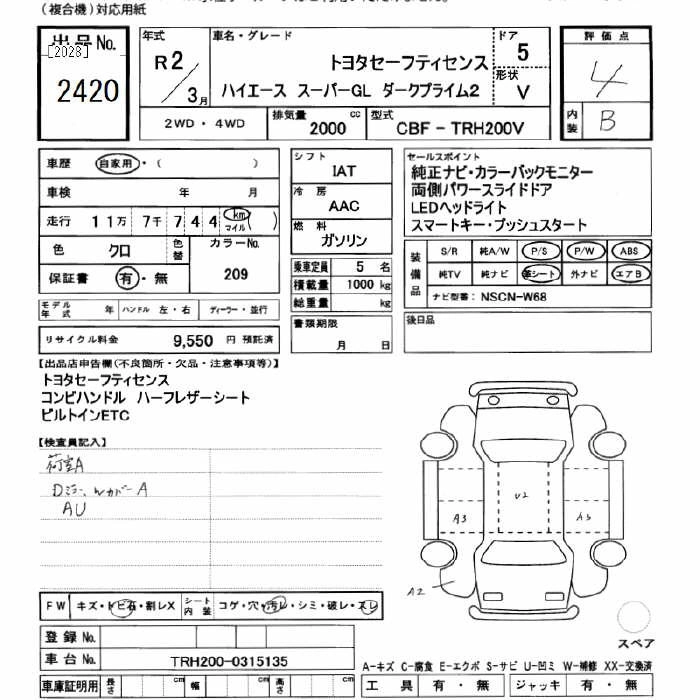 (複合機)対応用紙
出品No.
[2023]
2420
年式
R2/3月
車名・グレード
トヨタセーフティセンス
ハイエース スーパーGL ダークプライム2
ドア
5
形状
V
評価点
4
内装
B
2WD・4WD
排気量
2000 cc
型式
CBF-TRH200V
車歴 自家用・( )
車検 年 月
走行 11万 7千 7 4 4 km マイル ( )
色 クロ
色替
カラーNo.
209
保証書 有・無
モデル年式 年 ハンドル 左・右 ディーラー・並行
リサイクル料金 9,550 円 預託済
シフト
IAT
冷房
AAC
燃料
ガソリン
乗車定員 5 名
積載量 1000 kg
総重量 kg
書類期限
月 日
セールスポイント
純正ナビ・カラーバックモニター
両側パワースライドドア
LEDヘッドライト
スマートキー・プッシュスタート
装備品
S/R 純A/W P/S P/W ABS
純TV 純ナビ 革シート 外ナビ エアB
ナビ型番: NSCN-W68
後日品
【出品店申告欄(不良箇所・欠品・注意事項等)】
トヨタセーフティセンス
コンビハンドル ハーフレザーシート
ビルトインETC
【検査員記入】
荷室A
Dミラー、Wカバー A
AU
U2
A3
A3
A2
スペア
FW キズ・トビ石・割レX
シート内装 コゲ・穴・汚レ・シミ・破レ・スレ
登録No.
車台No. TRH200-0315135
車庫証明用 長さ cm 幅 cm 高さ cm
A-キズ C-腐食 E-エクボ S-サビ U-凹ミ W-補修 XX-交換済
工具 有・無 ジャッキ 有・無